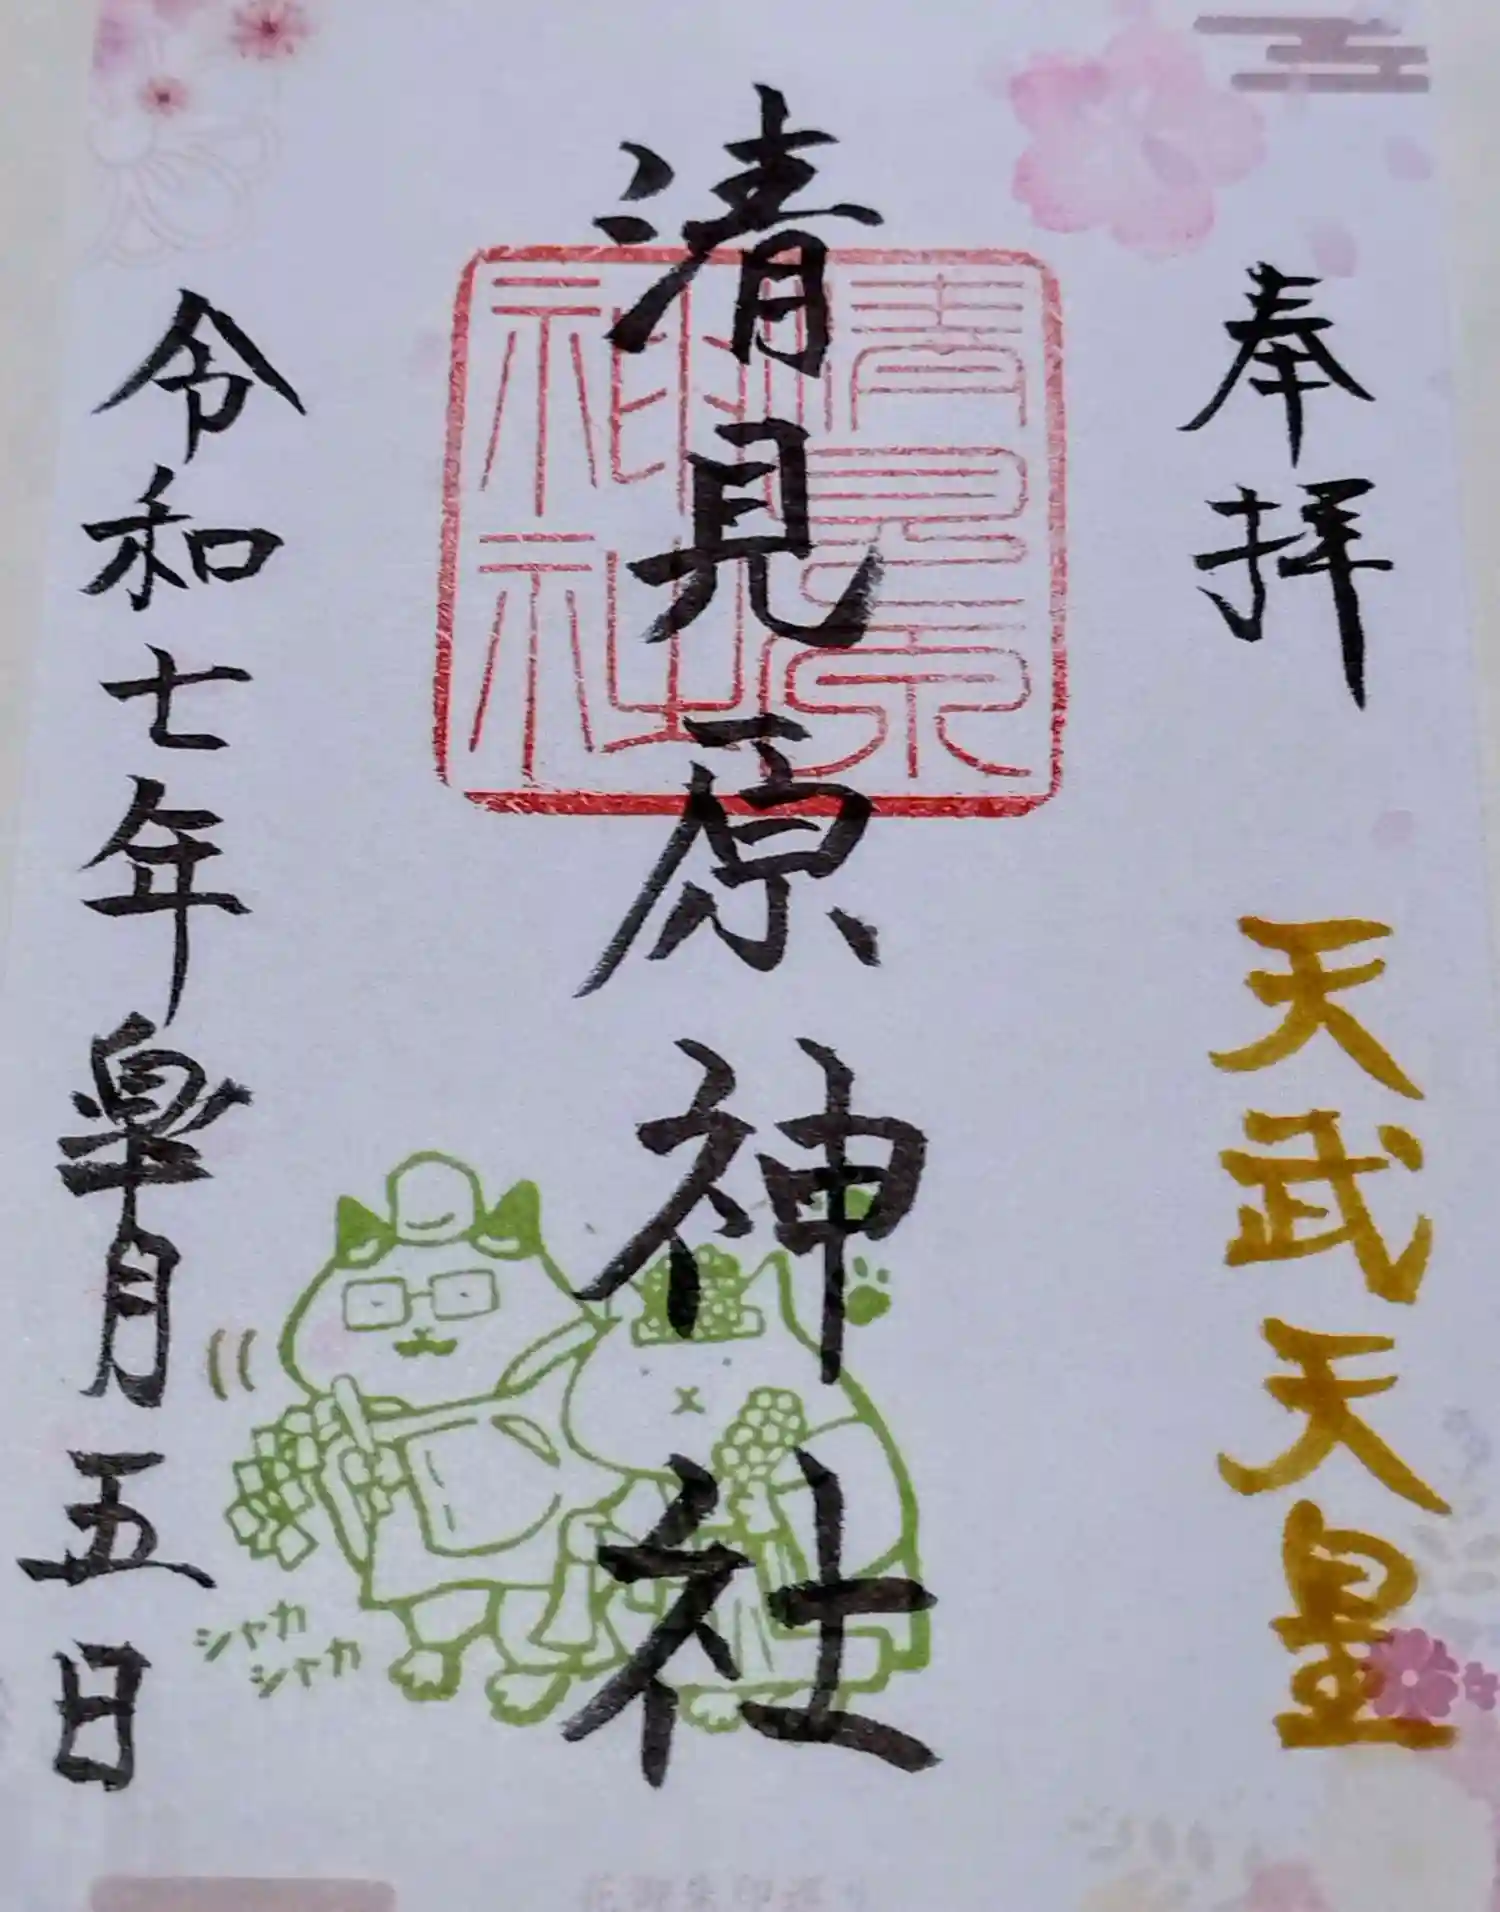 奉拝
天武天皇
清見原神社
清見原
神社
令和七年皐月五日
シャカ
シャカ
花御朱印巡り